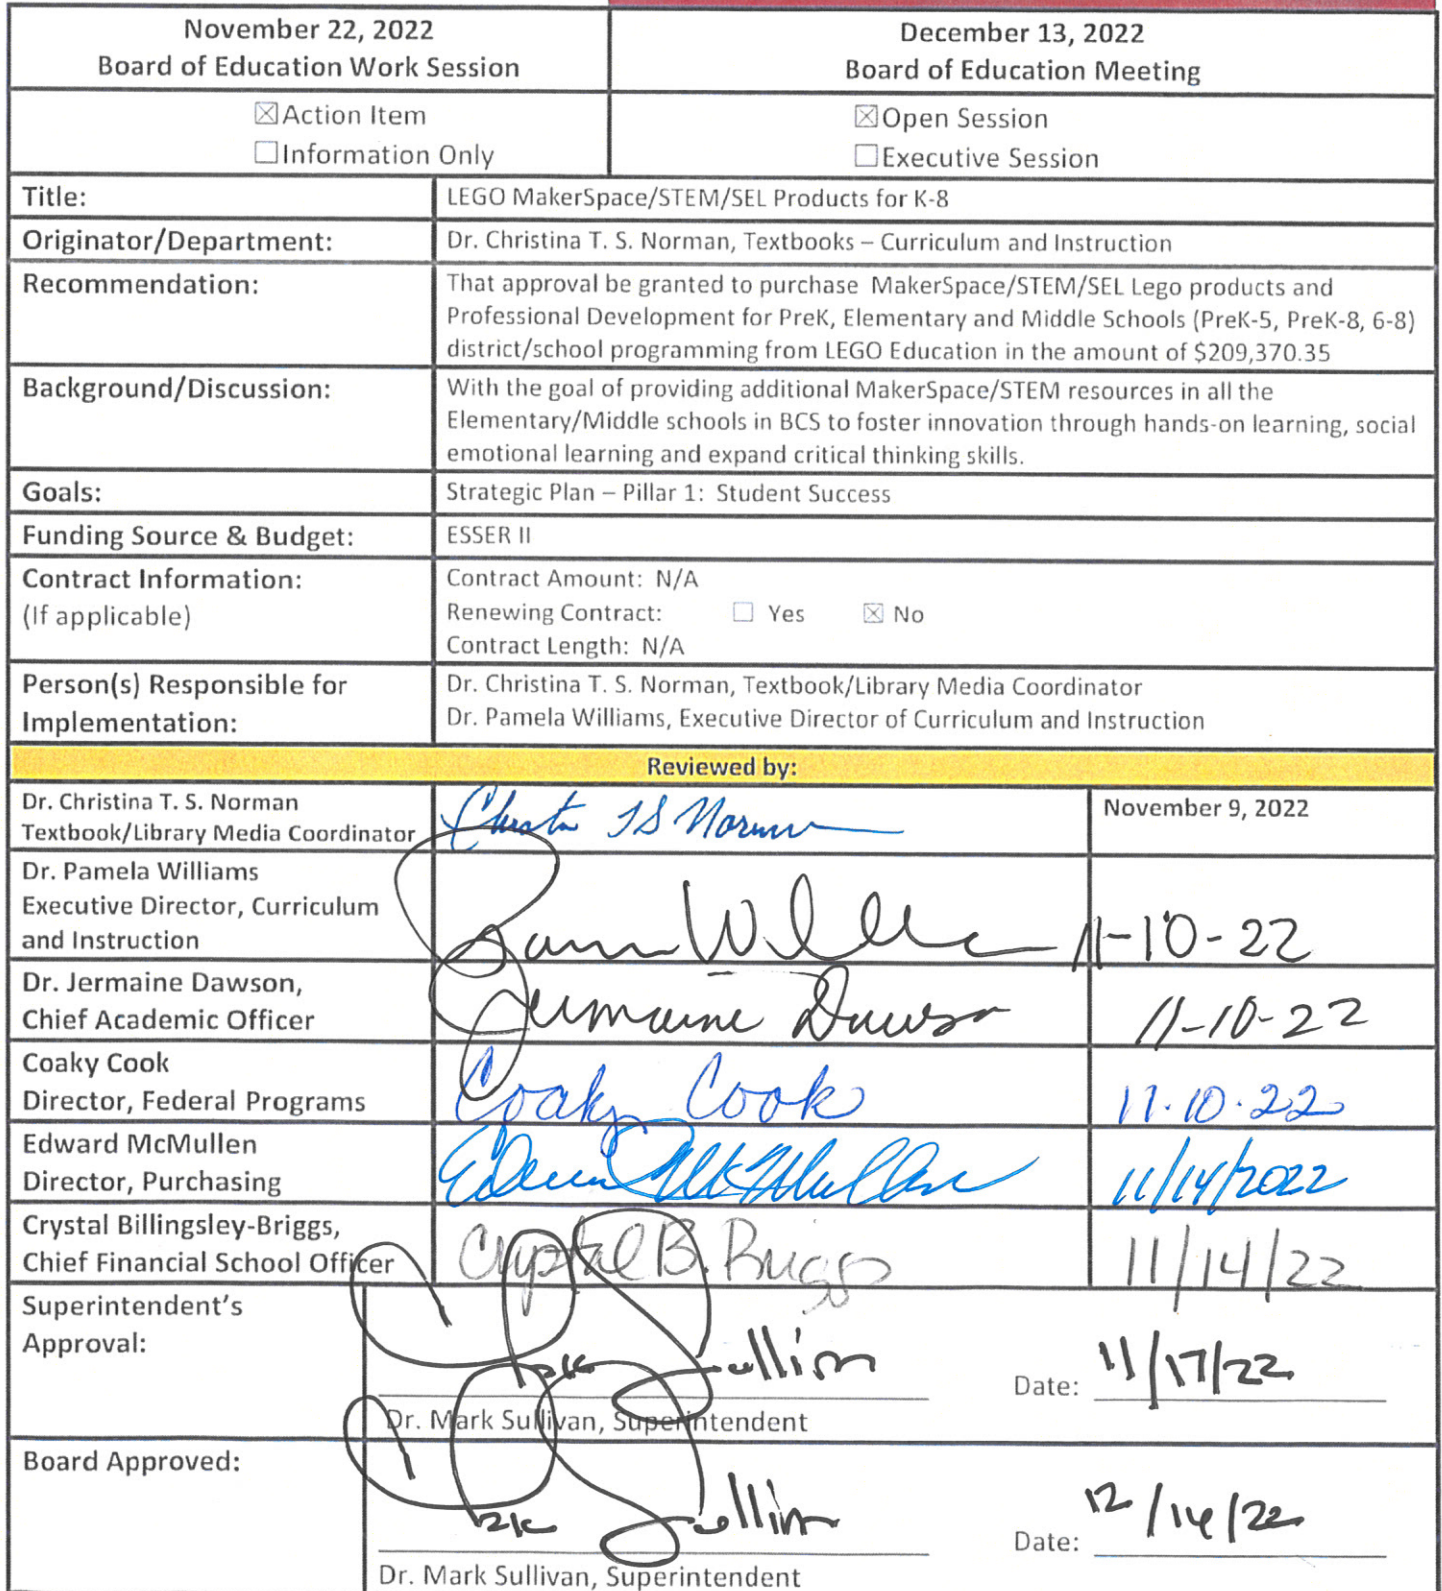 November 22, 2022
Board of Education Work Session
December 13, 2022
Board of Education Meeting
☒Action Item
☐Information Only
☒Open Session
☐Executive Session
Title:
LEGO MakerSpace/STEM/SEL Products for K-8
Originator/Department:
Dr. Christina T. S. Norman, Textbooks – Curriculum and Instruction
Recommendation:
That approval be granted to purchase MakerSpace/STEM/SEL Lego products and
Professional Development for PreK, Elementary and Middle Schools (PreK-5, PreK-8, 6-8)
district/school programming from LEGO Education in the amount of $209,370.35
Background/Discussion:
With the goal of providing additional MakerSpace/STEM resources in all the
Elementary/Middle schools in BCS to foster innovation through hands-on learning, social
emotional learning and expand critical thinking skills.
Goals:
Strategic Plan – Pillar 1: Student Success
Funding Source & Budget:
ESSER II
Contract Information:
(If applicable)
Contract Amount: N/A
Renewing Contract: ☐ Yes ☒ No
Contract Length: N/A
Person(s) Responsible for
Implementation:
Dr. Christina T. S. Norman, Textbook/Library Media Coordinator
Dr. Pamela Williams, Executive Director of Curriculum and Instruction
Reviewed by:
Dr. Christina T. S. Norman
Textbook/Library Media Coordinator
Christina TS Norman
November 9, 2022
Dr. Pamela Williams
Executive Director, Curriculum
and Instruction
Pam Willi
11-10-22
Dr. Jermaine Dawson,
Chief Academic Officer
Jermaine Dawson
11-10-22
Coaky Cook
Director, Federal Programs
Coaky Cook
11.10.22
Edward McMullen
Director, Purchasing
Edward McMullen
11/14/2022
Crystal Billingsley-Briggs,
Chief Financial School Officer
Crystal B. Briggs
11/14/22
Superintendent's
Approval:
Sullivan
Date: 11/17/22
Dr. Mark Sullivan, Superintendent
Board Approved:
Sullivan
Date: 12/14/22
Dr. Mark Sullivan, Superintendent